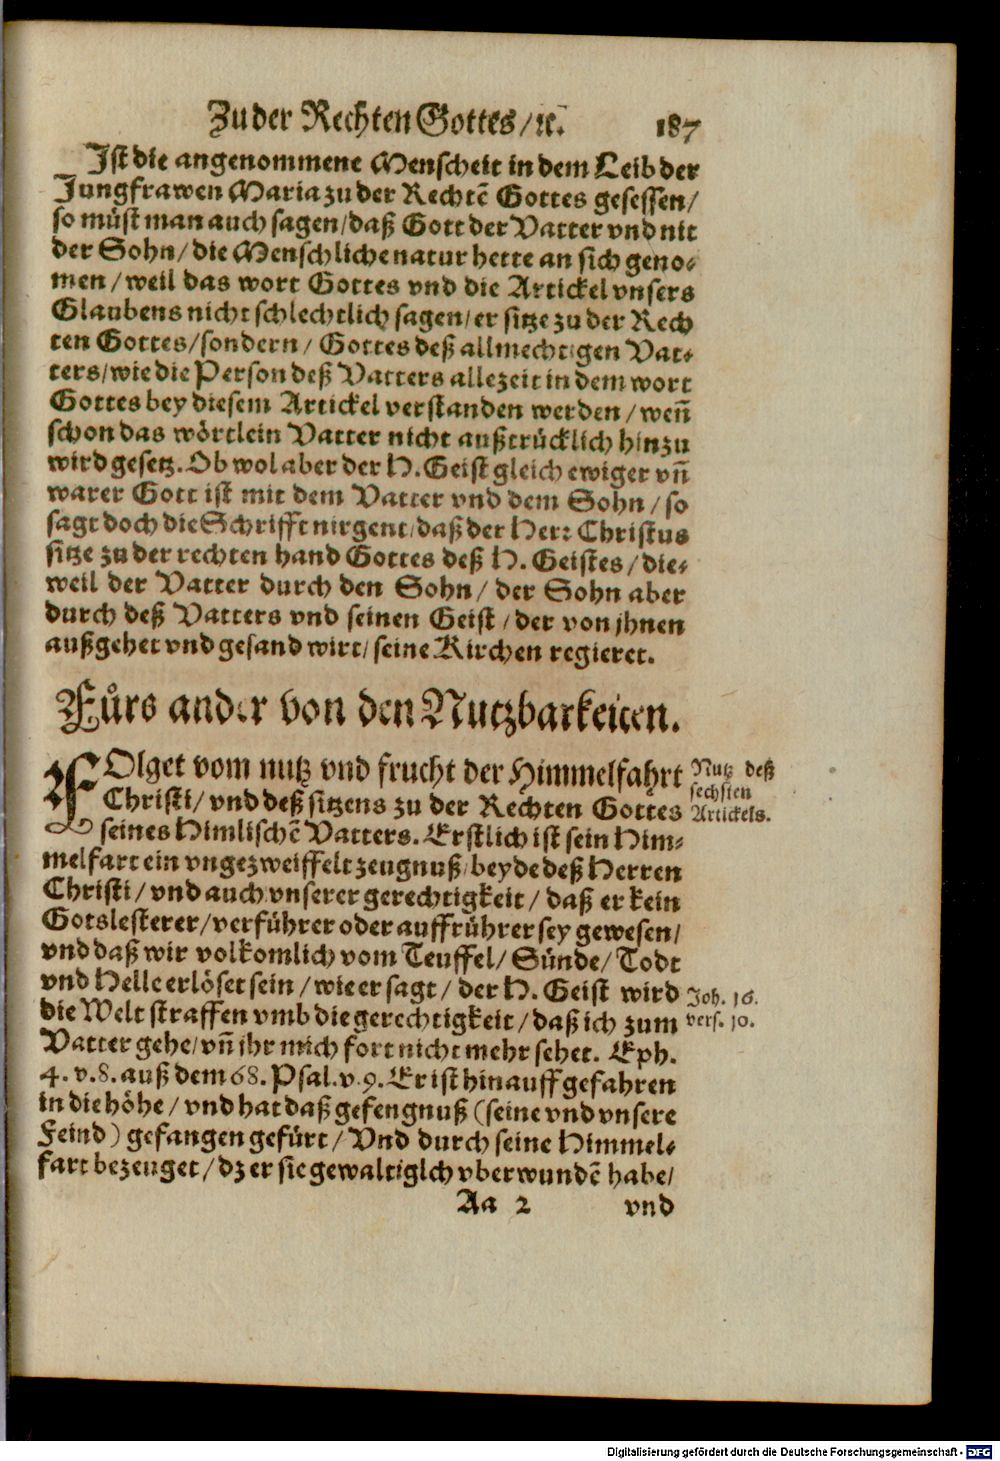 Zu der Rechten Gottes/ ꝛc. 187
Ist die angenommene Menscheit in dem Leib der
Jungfrawen Maria zu der Rechtẽ Gottes gesessen/
so müst man auch sagen/ daß Gott der Vatter vnd nit
der Sohn/ die Menschliche natur hette an sich geno-
men/ weil das wort Gottes vnd die Artickel vnsers
Glaubens nicht schlechtlich sagen/ er sitze zu der Rech
ten Gottes/ sondern/ Gottes deß allmechtigen Vat-
ters/ wie die Person deß Vatters allezeit in dem wort
Gottes bey diesem Artickel verstanden werden/ weñ
schon das wörtlein Vatter nicht außtrücklich hinzu
wird gesetz. Ob wol aber der H. Geist gleich ewiger vñ
warer Gott ist mit dem Vatter vnd dem Sohn/ so
sagt doch die Schrifft nirgent/ daß der Herꝛ Christus
sitze zu der rechten hand Gottes deß H. Geistes/ die-
weil der Vatter durch den Sohn/ der Sohn aber
durch deß Vatters vnd seinen Geist/ der von jhnen
außgehet vnd gesand wirt/ seine Kirchen regieret.
Fůrs ander von den Nutzbarkeiten.
FOlget vom nutz vnd frucht der Himmelfahrt
Christi/ vnd deß sitzens zu der Rechten Gottes
seines Himlischẽ Vatters. Erstlich ist sein Him-
melfart ein vngezweiffelt zeugnuß/ beyde deß Herren
Christi/ vnd auch vnserer gerechtigkeit/ daß er kein
Gotslesterer/ verführer oder auffrührer sey gewesen/
vnd daß wir volkomlich vom Teuffel/ Sünde/ Todt
vnd Helle erlöset sein/ wie er sagt/ der H. Geist wird
die Welt straffen vmb die gerechtigkeit/ daß ich zum
Vatter gehe/ vñ jhr mich fort nicht mehr sehet. Eph.
4. v. 8. auß dem 68. Psal. v. 9. Er ist hinauff gefahren
in die höhe/ vnd hat daß gefengnuß (seine vnd vnsere
Feind) gefangen gefürt/ Vnd durch seine Himmel-
fart bezeuget/ dz er sie gewaltiglch vberwundẽ habe/
Aa 2 vnd
Nutz deß
sechsten
Artickels.
Joh. 16.
vers. 10.
Digitalisierung gefördert durch die Deutsche Forschungsgemeinschaft - DFG